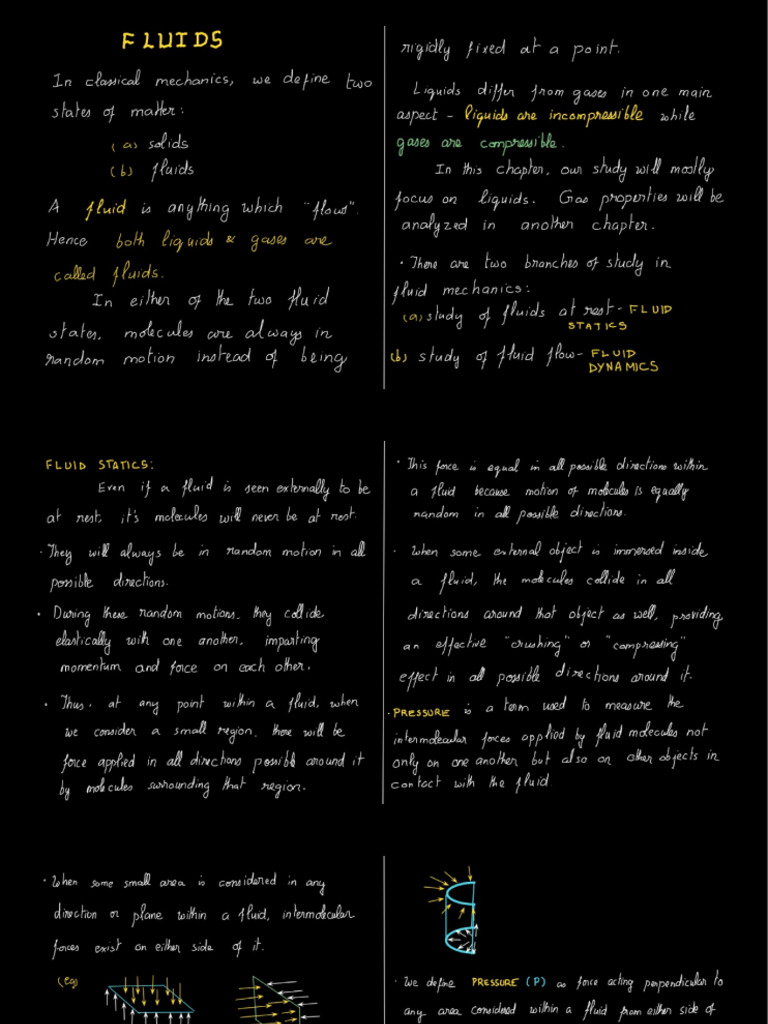 FLUIDS
In classical mechanics, we define two
states of matter:
(a) solids
(b) fluids
A fluid is anything which "flows".
Hence both liquids & gases are
called fluids.
In either of the two fluid
states, molecules are always in
random motion instead of being
rigidly fixed at a point.
Liquids differ from gases in one main
aspect - liquids are incompressible while
gases are compressible.
In this chapter, our study will mostly
focus on liquids. Gas properties will be
analyzed in another chapter.
• There are two branches of study in
fluid mechanics:
(a) study of fluids at rest - FLUID
STATICS
(b) study of fluid flow - FLUID
DYNAMICS
FLUID STATICS:
Even if a fluid is seen externally to be
at rest, it's molecules will never be at rest.
• They will always be in random motion in all
possible directions.
• During these random motions, they collide
elastically with one another, imparting
momentum and force on each other.
• Thus, at any point within a fluid, when
we consider a small region, there will be
force applied in all directions possible around it
by molecules surrounding that region.
• This force is equal in all possible directions within
a fluid because motion of molecules is equally
random in all possible directions.
• When some external object is immersed inside
a fluid, the molecules collide in all
directions around that object as well, providing
an effective "crushing" or "compressing"
effect in all possible directions around it.
• PRESSURE is a term used to measure the
intermolecular forces applied by fluid molecules not
only on one another but also on other objects in
contact with the fluid.
• When some small area is considered in any
direction or plane within a fluid, intermolecular
forces exist on either side of it.
(eg)
• We define PRESSURE (P) as force acting perpendicular to
any area considered within a fluid from either side of